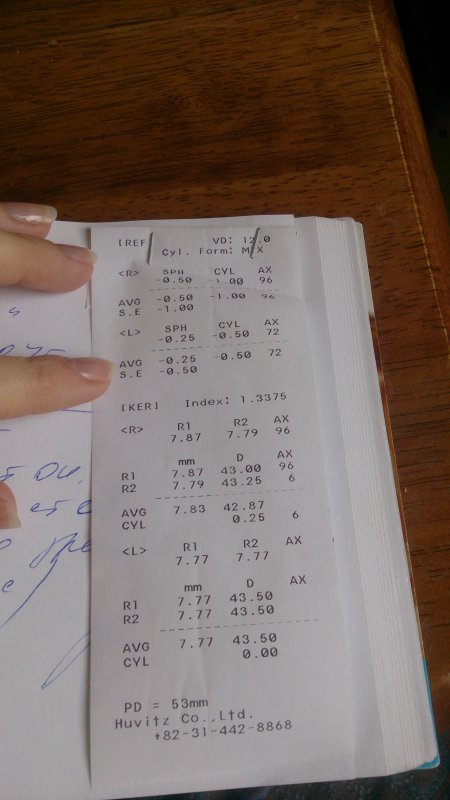 [REF] VD: 12.0
Cyl. Form: MIX
<R> SPH CYL AX
-0.50 -1.00 96
AVG -0.50 -1.00 96
S.E -1.00
<L> SPH CYL AX
-0.25 -0.50 72
AVG -0.25 -0.50 72
S.E -0.50
[KER] Index: 1.3375
<R> R1 R2 AX
7.87 7.79 96
mm D AX
R1 7.87 43.00 96
R2 7.79 43.25 6
AVG 7.83 42.87
CYL 0.25 6
<L> R1 R2 AX
7.77 7.77
mm D AX
R1 7.77 43.50
R2 7.77 43.50
AVG 7.77 43.50
CYL 0.00
PD = 53mm
Huvitz Co.,Ltd.
+82-31-442-8868